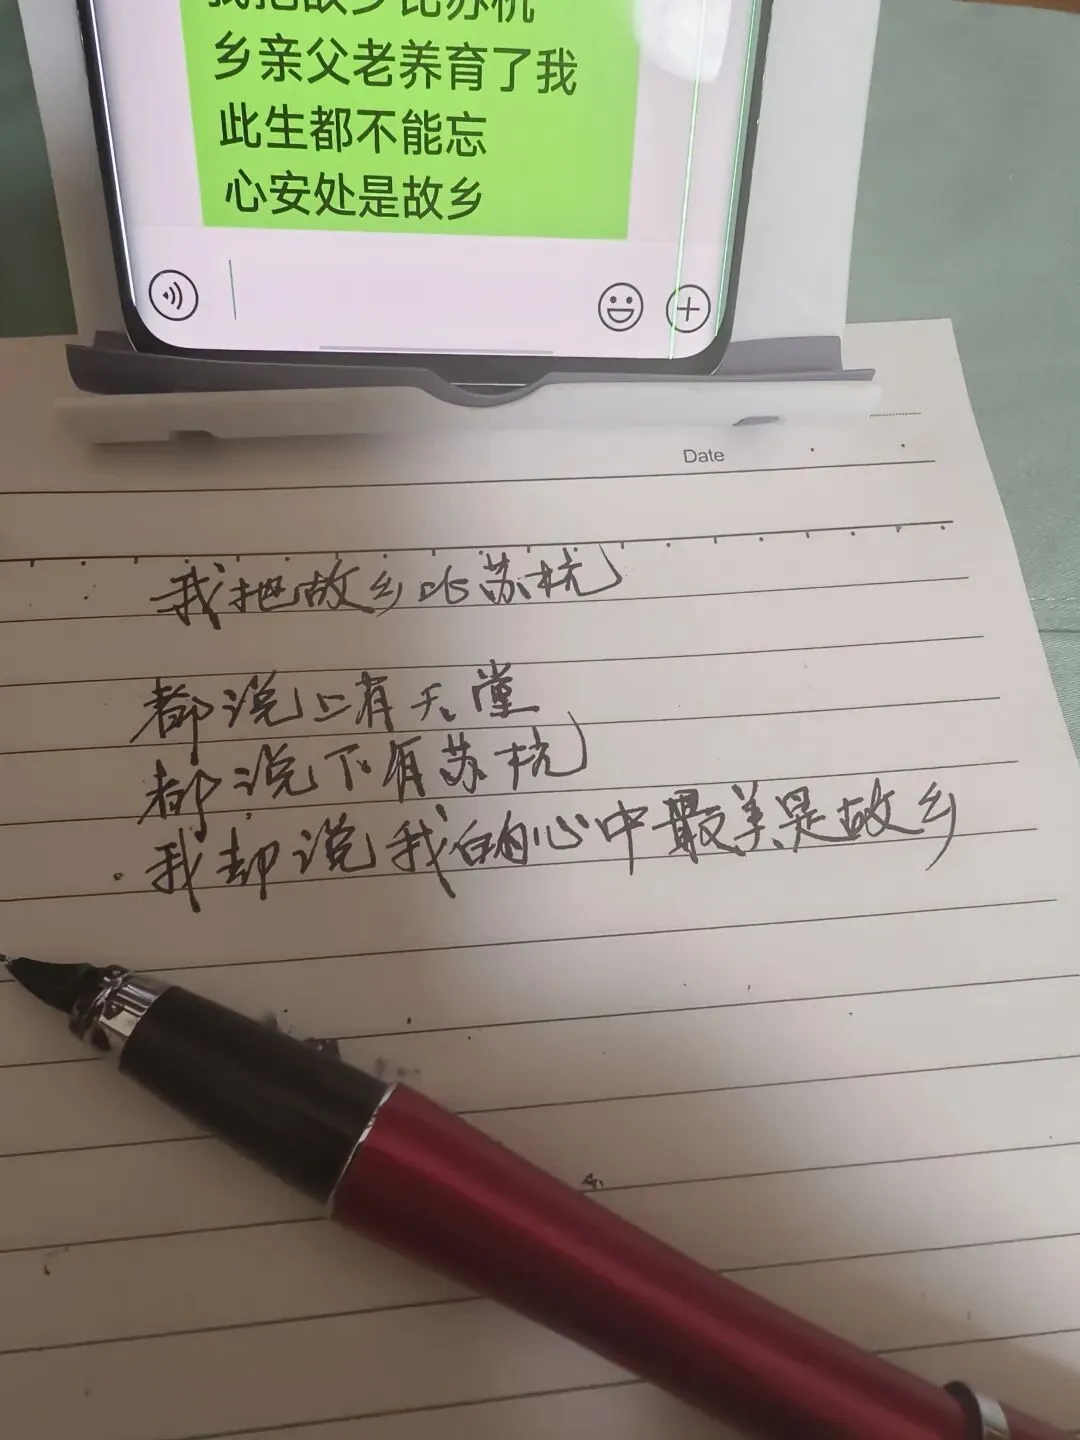 我把故乡比苏杭
乡亲父老养育了我
此生都不能忘
心安处是故乡
Date
我把故乡比苏杭
都说上有天堂
都说下有苏杭
我却说我的心中最美是故乡